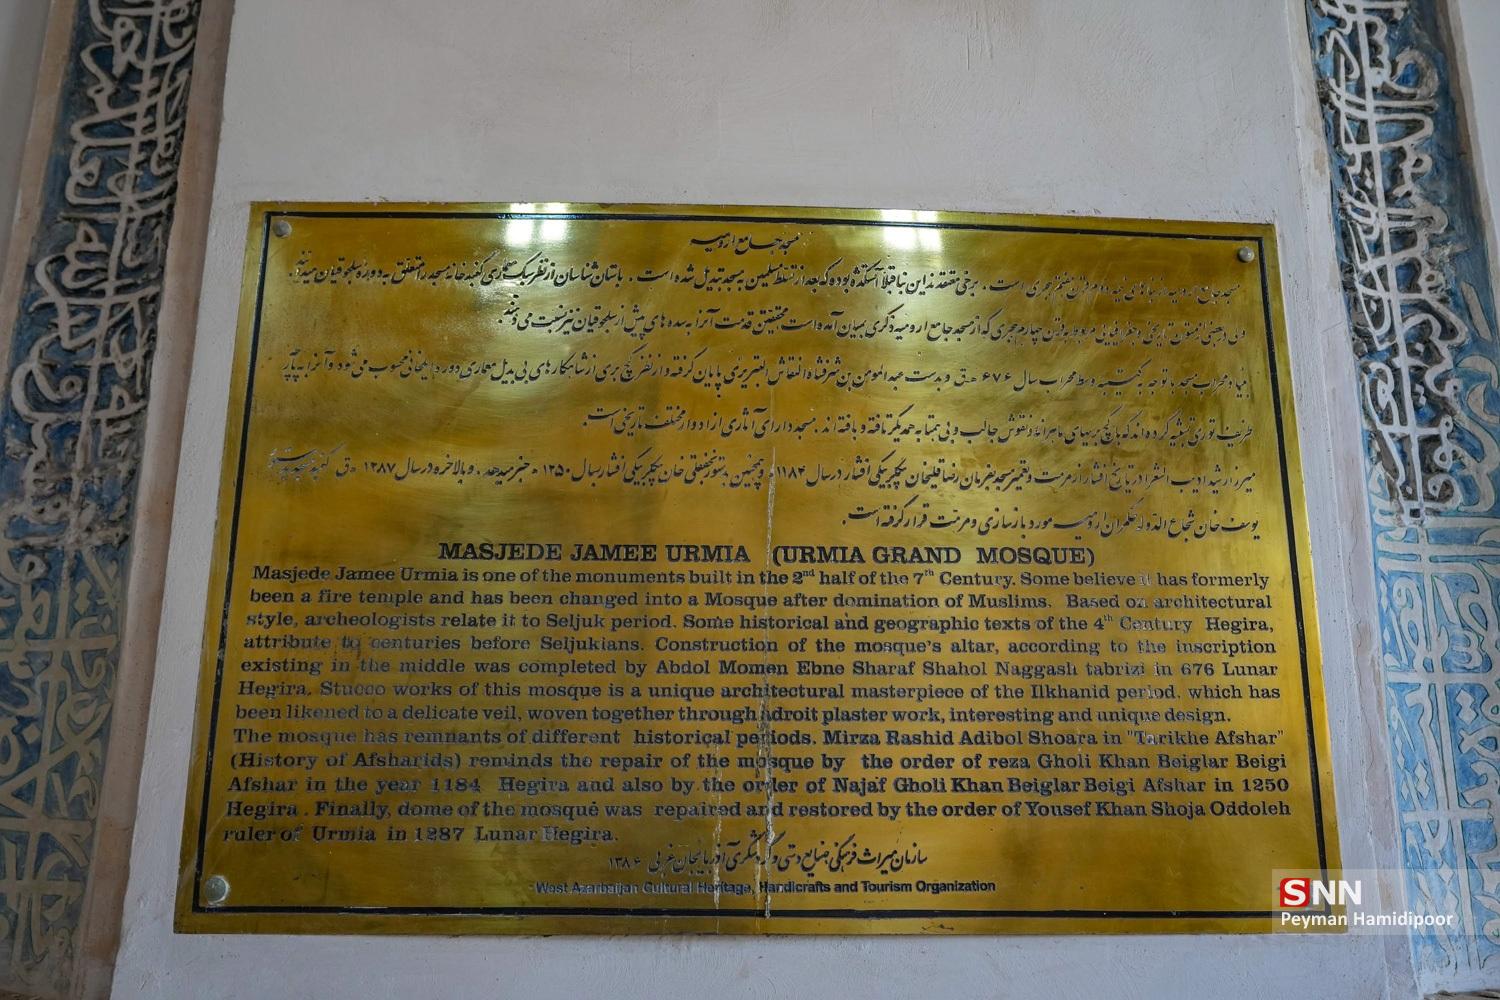 مسجد جامع ارومیه
مسجد جامع ارومیه از بناهای نیمه دوم قرن هفتم هجری است . برخی معتقدند این بنا قبلاً آتشکده بوده که بعد از تسلط مسلمین به مسجد تبدیل شده است . باستان شناسان از نظر سبک معماری گنبد خانه مسجد را متعلق به دوره سلجوقیان میدانند
ولی در بعضی از متون تاریخی و جغرافیایی مربوط به قرن چهارم هجری که از مسجد جامع ارومیه ذکری بمیان آمده است محققین قدمت آنرا به سده های پیش از سلجوقیان نیز نسبت می دهند
بنیاد محراب مسجد با توجه به کتیبه وسط محراب سال ۶۷۶ ه ق و بدست عبدالمومن بن شرفشاه النقاش التبریزی پایان گرفته و از نظر گچ بری از شاهکار های بی بدیل معماری دوره ایلخانی محسوب می شود و آنرا به پارچه
ظریف توری تشبیه کرده اند که با گچبریهای ماهرانه و نقوش جالب و بی همتا به همدیگر تافته و بافته اند . مسجد دارای آثاری از ادوار مختلف تاریخی است
میرزا رشید ادیب الشعرا در تاریخ افشار از مرمت و تعمیر مسجد بفرمان رضا قلیخان بیگلربیگی افشار در سال ۱۱۸۴ و همچنین به دستور نجفقلی خان بیگلربیگی افشار بسال ۱۲۵۰ ه خبر میدهد ، و بالاخره در سال ۱۲۸۷ ه ق گنبد مسجد به دستور
یوسف خان شجاع الدوله حکمران ارومیه مورد بازسازی و مرمت قرار گرفته است .
MASJEDE JAMEE URMIA (URMIA GRAND MOSQUE)
Masjede Jamee Urmia is one of the monuments built in the 2nd half of the 7th Century. Some believe it has formerly
been a fire temple and has been changed into a Mosque after domination of Muslims. Based on architectural
style, archeologists relate it to Seljuk period. Some historical and geographic texts of the 4th Century Hegira,
attribute to centuries before Seljukians. Construction of the mosque's altar, according to the inscription
existing in the middle was completed by Abdol Momen Ebne Sharaf Shahol Naggash tabrizi in 676 Lunar
Hegira. Stucco works of this mosque is a unique architectural masterpiece of the Ilkhanid period, which has
been likened to a delicate veil, woven together through adroit plaster work, interesting and unique design.
The mosque has remnants of different historical periods. Mirza Rashid Adibol Shoara in "Tarikhe Afshar"
(History of Afsharids) reminds the repair of the mosque by the order of reza Gholi Khan Beiglar Beigi
Afshar in the year 1184 Hegira and also by the order of Najaf Gholi Khan Beiglar Beigi Afshar in 1250
Hegira . Finally, dome of the mosque was repaired and restored by the order of Yousef Khan Shoja Oddoleh
ruler of Urmia in 1287 Lunar Hegira.
سازمان میراث فرهنگی صنایع دستی و گردشگری آذربایجان غربی ۱۳۸۶
West Azarbaijan Cultural Heritage, Handicrafts and Tourism Organization
SNN
Peyman Hamidipoor